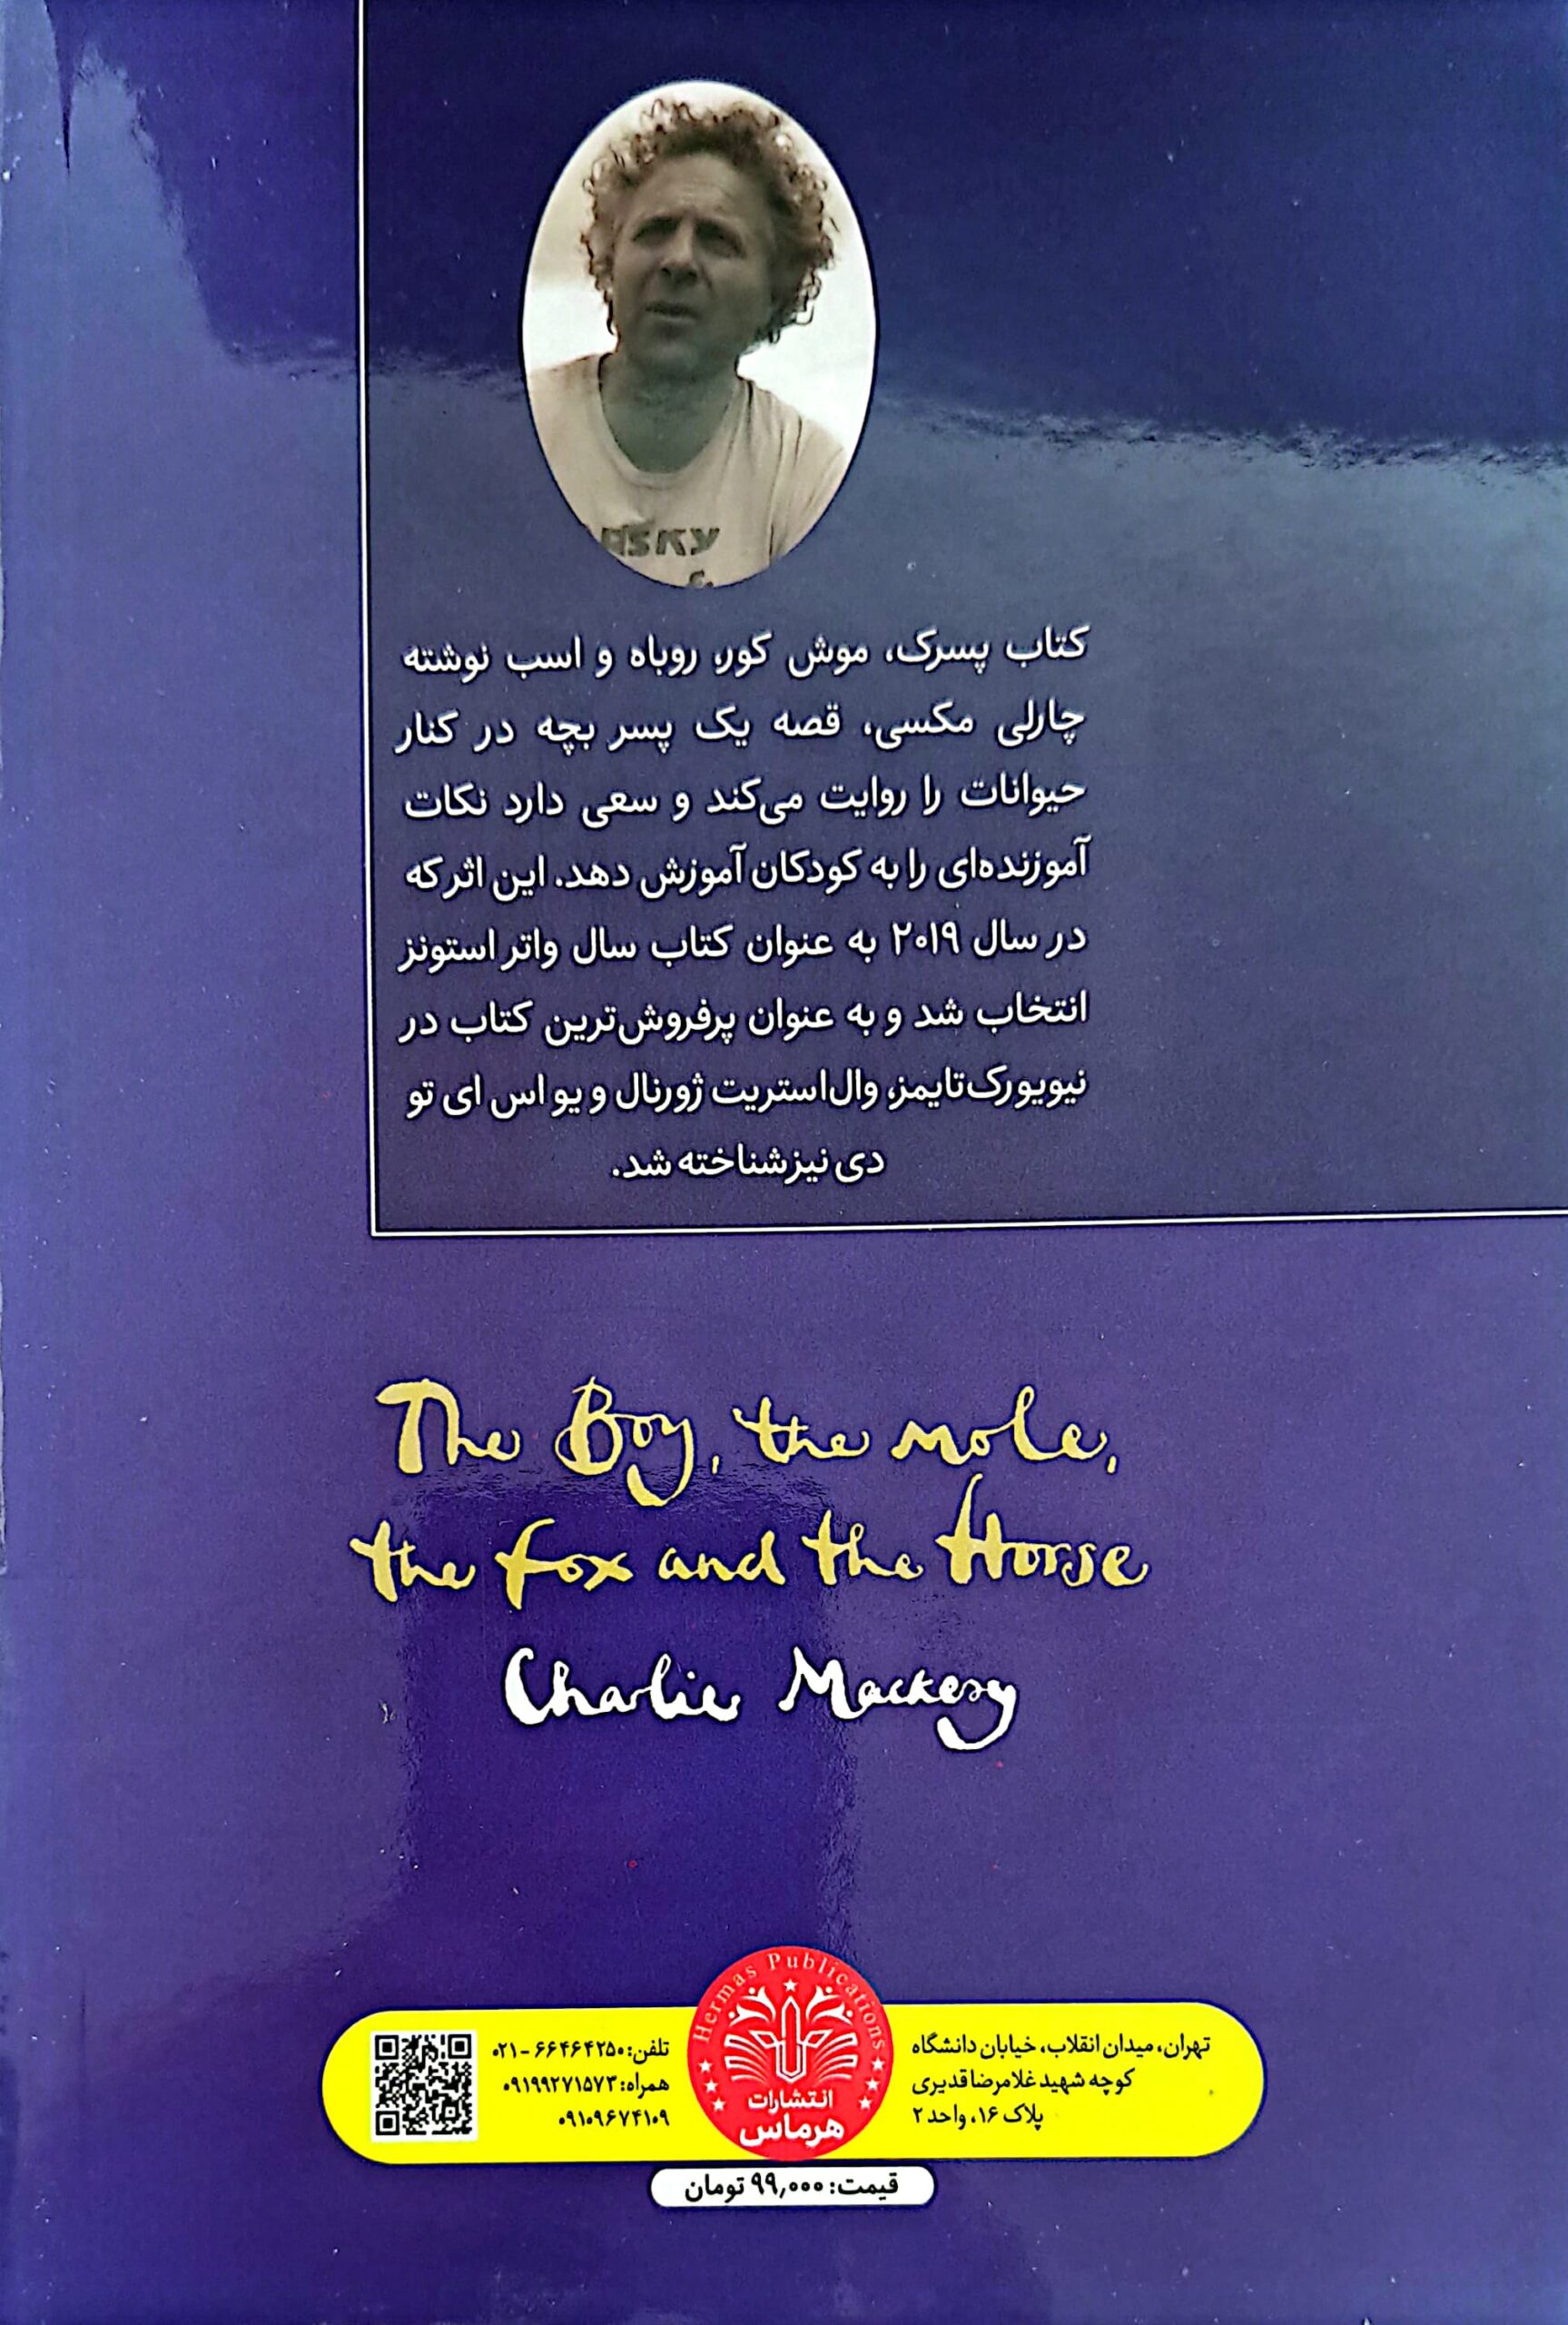 کتاب پسرک، موش کور، روباه و اسب نوشته
چارلی مکسی، قصه یک پسر بچه در کنار
حیوانات را روایت می‌کند و سعی دارد نکات
آموزنده‌ای را به کودکان آموزش دهد. این اثر که
در سال ۲۰۱۹ به عنوان کتاب سال واتر استونز
انتخاب شد و به عنوان پرفروش‌ترین کتاب در
نیویورک‌تایمز، وال‌استریت ژورنال و یو اس ای تو
دی نیز شناخته شد.
The Boy, the mole,
the fox and the Horse
Charlie Mackesy
Hermas Publications
انتشارات
هرماس
تهران، میدان انقلاب، خیابان دانشگاه
کوچه شهید غلامرضا قدیری
پلاک ۱۶، واحد ۲
تلفن: ۶۶۴۶۴۲۵۰ - ۰۲۱
همراه: ۰۹۱۹۹۲۷۱۵۷۳
۰۹۱۰۹۶۷۴۱۰۹
قیمت: ۹۹,۰۰۰ تومان